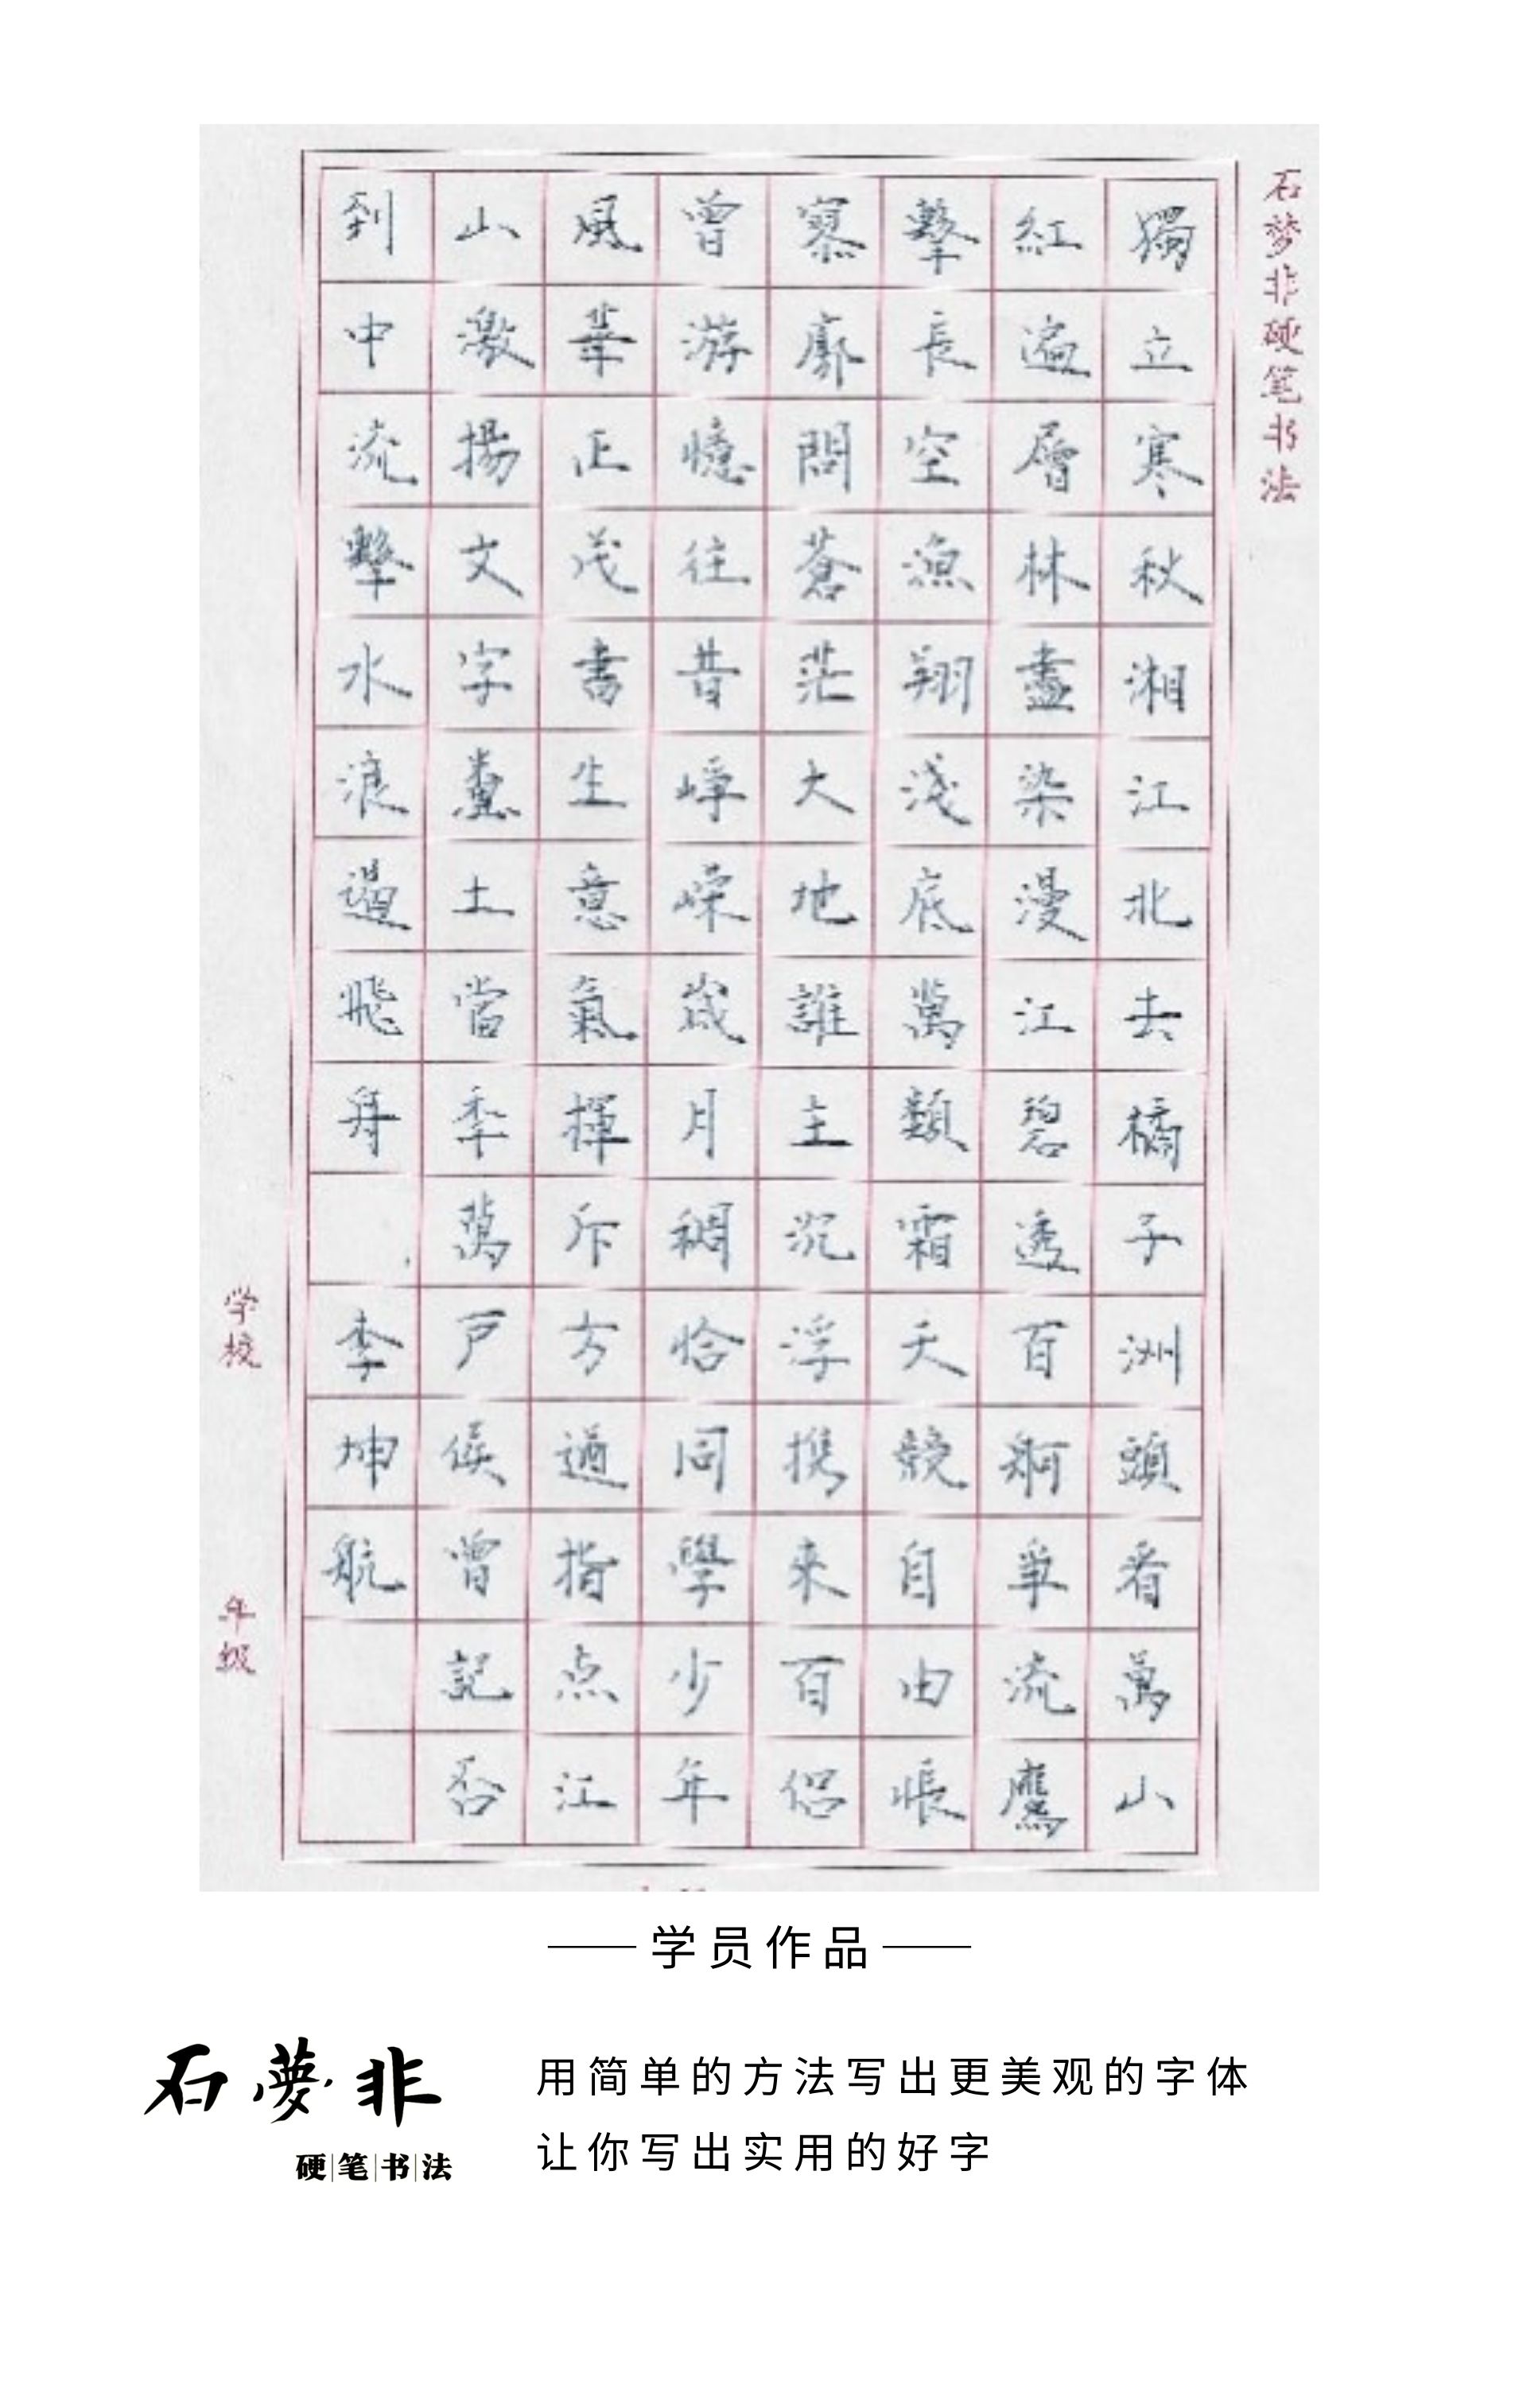 石梦非硬笔书法
獨立寒秋湘江北去橘子洲頭看萬山
紅遍層林盡染漫江碧透百舸爭流鷹
擊長空漁翔淺底萬類霜天競自由悵
寥廓問蒼茫大地誰主沉浮携來百侣
曾游憶往昔崢嶸歲月稠恰同學少年
風華正茂書生意氣揮斥方遒指点江
山激揚文字糞土當年萬戸侯曾記否
到中流擊水浪遏飛舟
李坤航
学校
年级
学员作品
石夢非
硬笔书法
用简单的方法写出更美观的字体
让你写出实用的好字